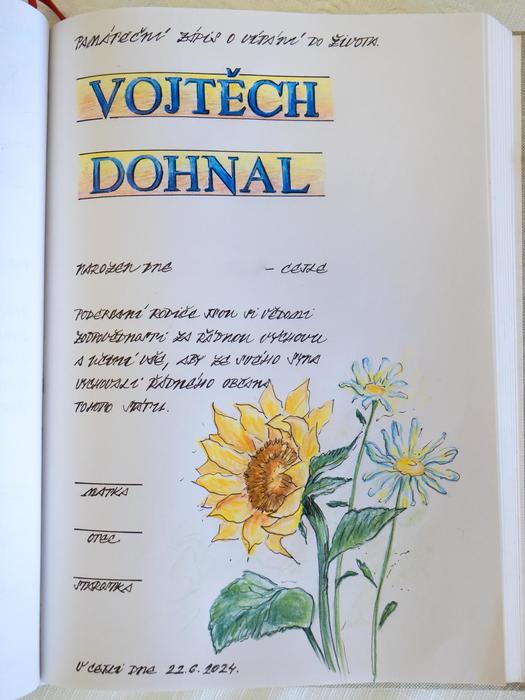 PAMÁTEČNÍ ZÁPIS O VÍTÁNÍ DO ŽIVOTA
VOJTĚCH
DOHNAL
NAROZEN DNE - CETLE
PODEPSANÍ RODIČE JSOU SI VĚDOMI
ZODPOVĚDNOSTI ZA ŘÁDNOU VÝCHOVU
A UČINÍ VŠE, ABY ZE SVÉHO SYNA
VYCHOVALI ŘÁDNÉHO OBČANA
TOHOTO STÁTU.
MATKA
OTEC
STAROSTKA
V CETLI DNE 22.6.2024.